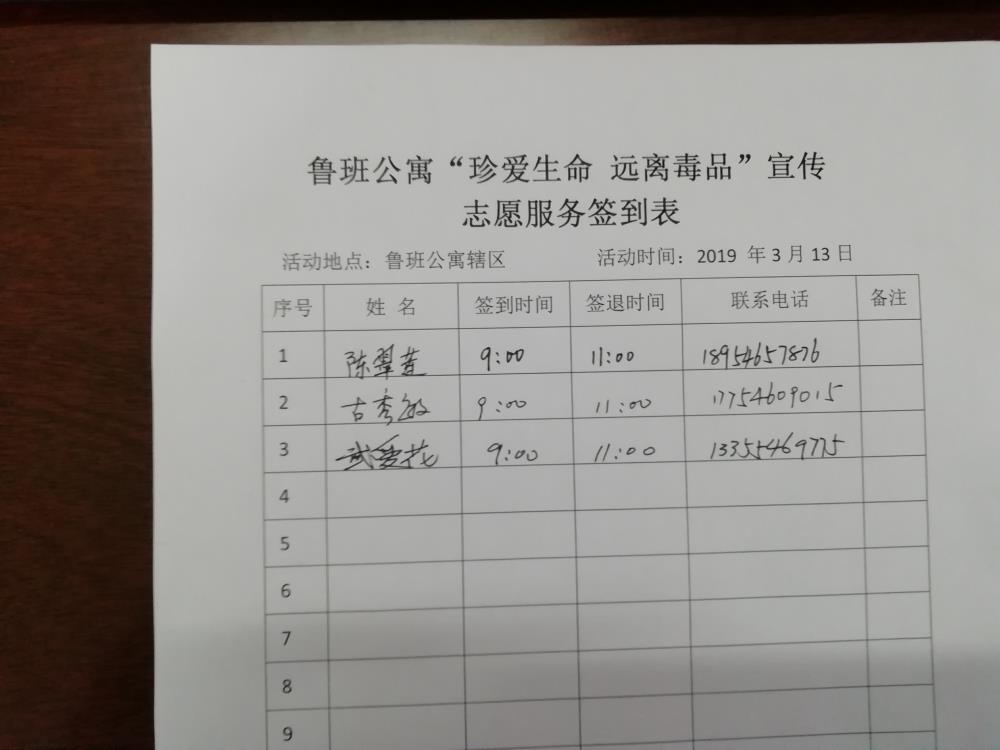 鲁班公寓“珍爱生命 远离毒品”宣传
志愿服务签到表
活动地点：鲁班公寓辖区 活动时间：2019 年3月13日
序号 姓 名 签到时间 签退时间 联系电话 备注
1 陈翠萱 9:00 11:00 18954657876
2 古秀敏 9:00 11:00 17754609015
3 武爱花 9:00 11:00 13355469775
4
5
6
7
8
9